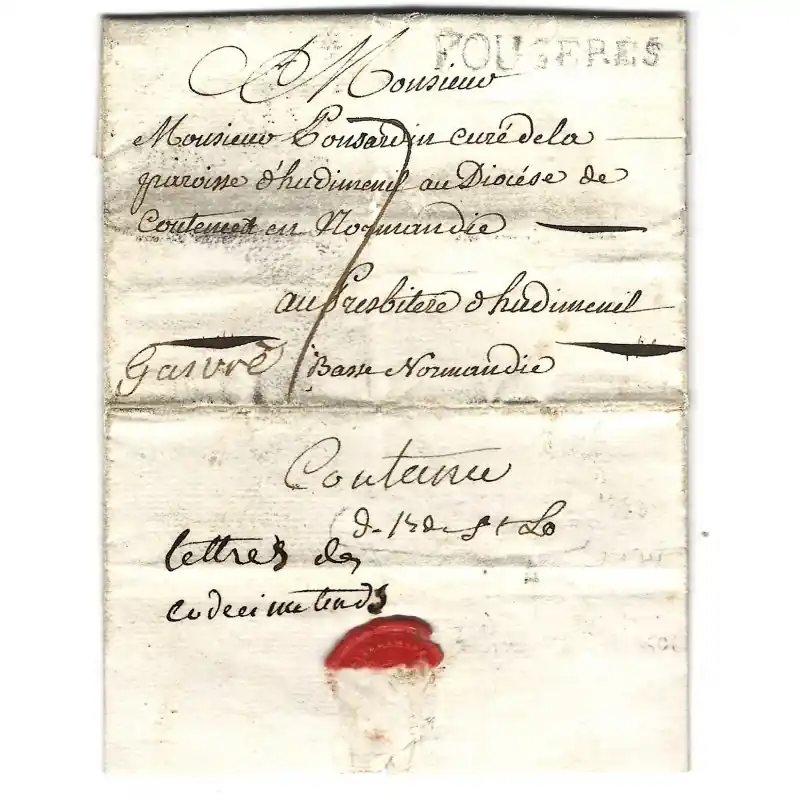 FOUGERES
A Monsieur
Monsieur Ponsardin curé de la
paroisse d'hudimenil au Diocése de
Coutences en Normandie
7
au Presbitere d'hudimenil
Gavré
Basse Normandie
Coutance
d. St Lo
lettres de
codecimatends